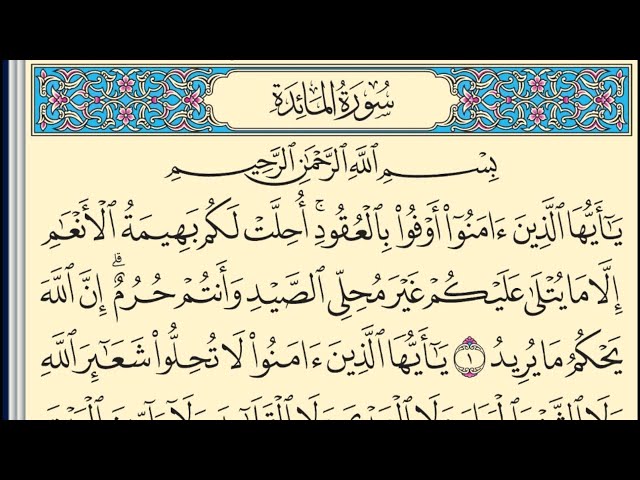 سُورَةُ المَائِدَةِ
بِسْمِ ٱللَّهِ ٱلرَّحْمَٰنِ ٱلرَّحِيمِ
يَٰٓأَيُّهَا ٱلَّذِينَ ءَامَنُوٓا۟ أَوْفُوا۟ بِٱلْعُقُودِ ۚ أُحِلَّتْ لَكُم بَهِيمَةُ ٱلْأَنْعَٰمِ
إِلَّا مَا يُتْلَىٰ عَلَيْكُمْ غَيْرَ مُحِلِّى ٱلصَّيْدِ وَأَنتُمْ حُرُمٌ ۗ إِنَّ ٱللَّهَ
يَحْكُمُ مَا يُرِيدُ ١ يَٰٓأَيُّهَا ٱلَّذِينَ ءَامَنُوا۟ لَا تُحِلُّوا۟ شَعَٰٓئِرَ ٱللَّهِ